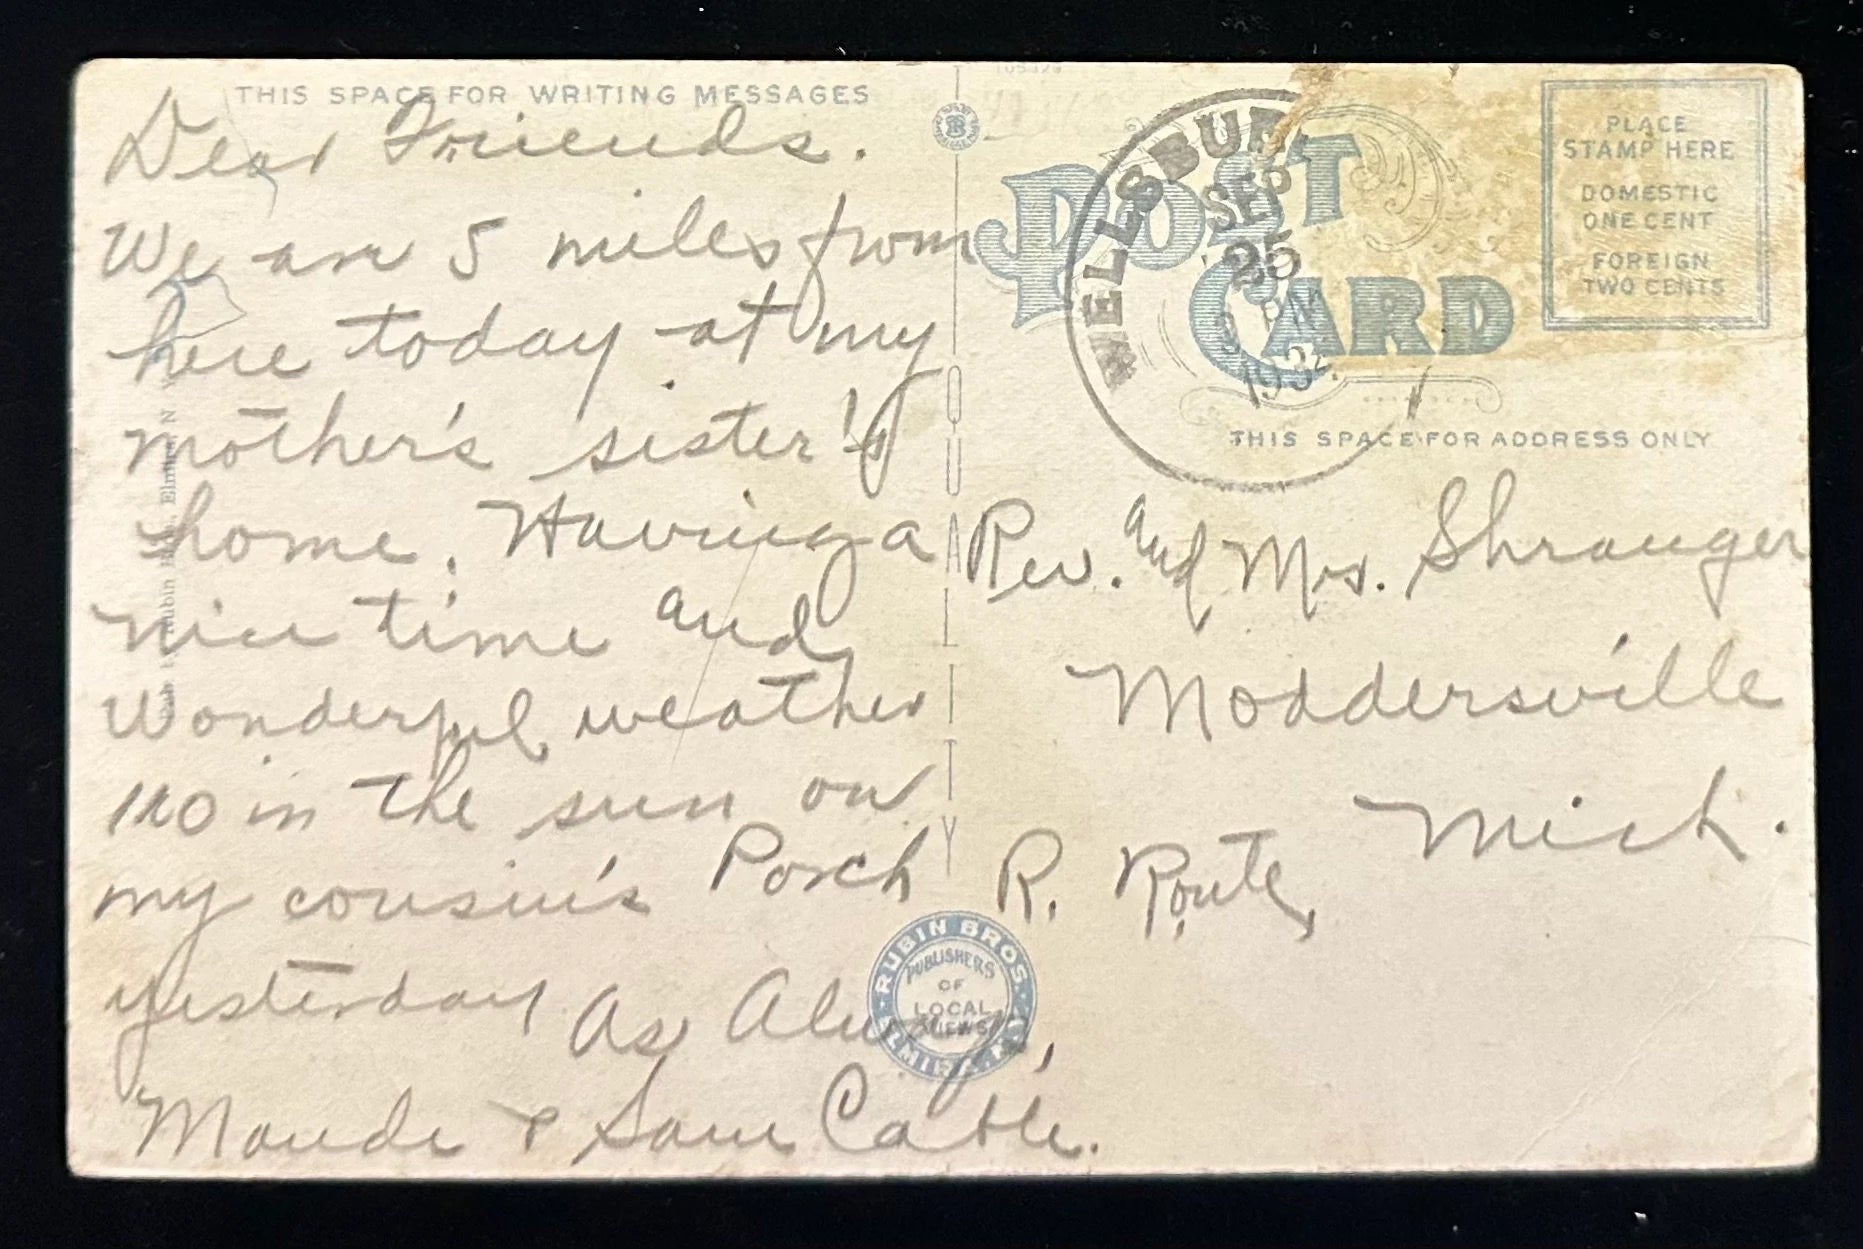 THIS SPACE FOR WRITING MESSAGES
Dear Friends.
We are 5 miles from
here today at my
mother's sister's
home. Having a
nice time and
wonderful weather
110 in the sun on
my cousin's Porch
yesterday
As Always,
Maude & Sam Cable.
Rubin Elmira, N
RUBIN BROS.
PUBLISHERS
OF
LOCAL
VIEWS
ELMIRA, N.Y.
POST
CARD
WELLSBUR
SEP
25
PM
193
PLACE
STAMP HERE
DOMESTIC
ONE CENT
FOREIGN
TWO CENTS
THIS SPACE FOR ADDRESS ONLY
Rev. and Mrs. Shrauger
Moddersville
Mich.
R. Route,